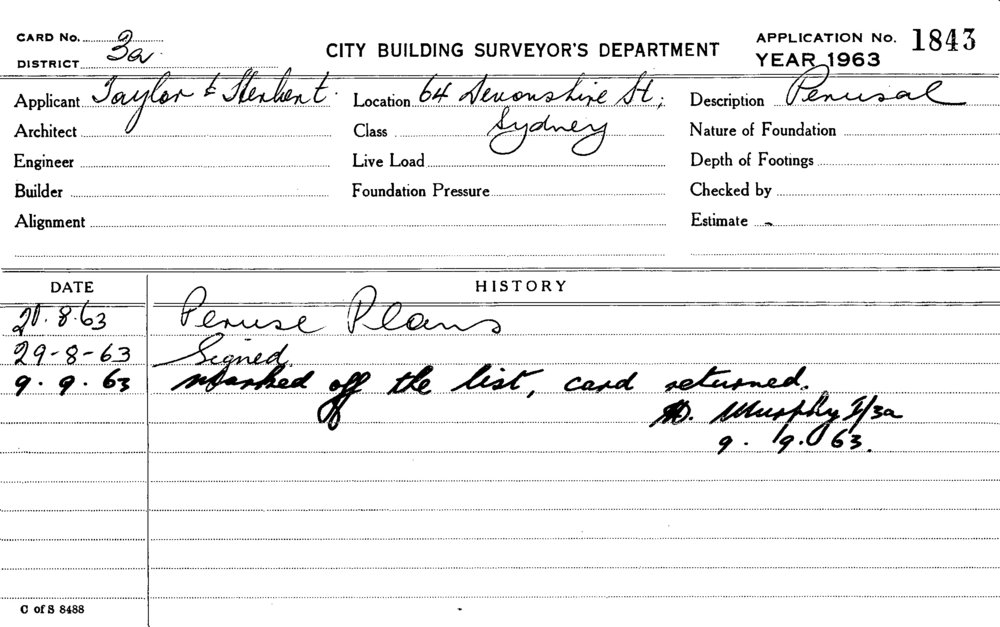 CARD No. 3a
DISTRICT
CITY BUILDING SURVEYOR'S DEPARTMENT
APPLICATION No. 1843
YEAR 1963
Applicant Taylor & Herbert. Location 64 Devonshire St; Description Perusal
Architect Class Sydney Nature of Foundation
Engineer Live Load Depth of Footings
Builder Foundation Pressure Checked by
Alignment Estimate -
DATE HISTORY
8.63 Peruse Plans
29-8-63 Signed
9.9.63 Marked off the list, card returned.
Murphy I/3a
9.9.63.
C of S 8488